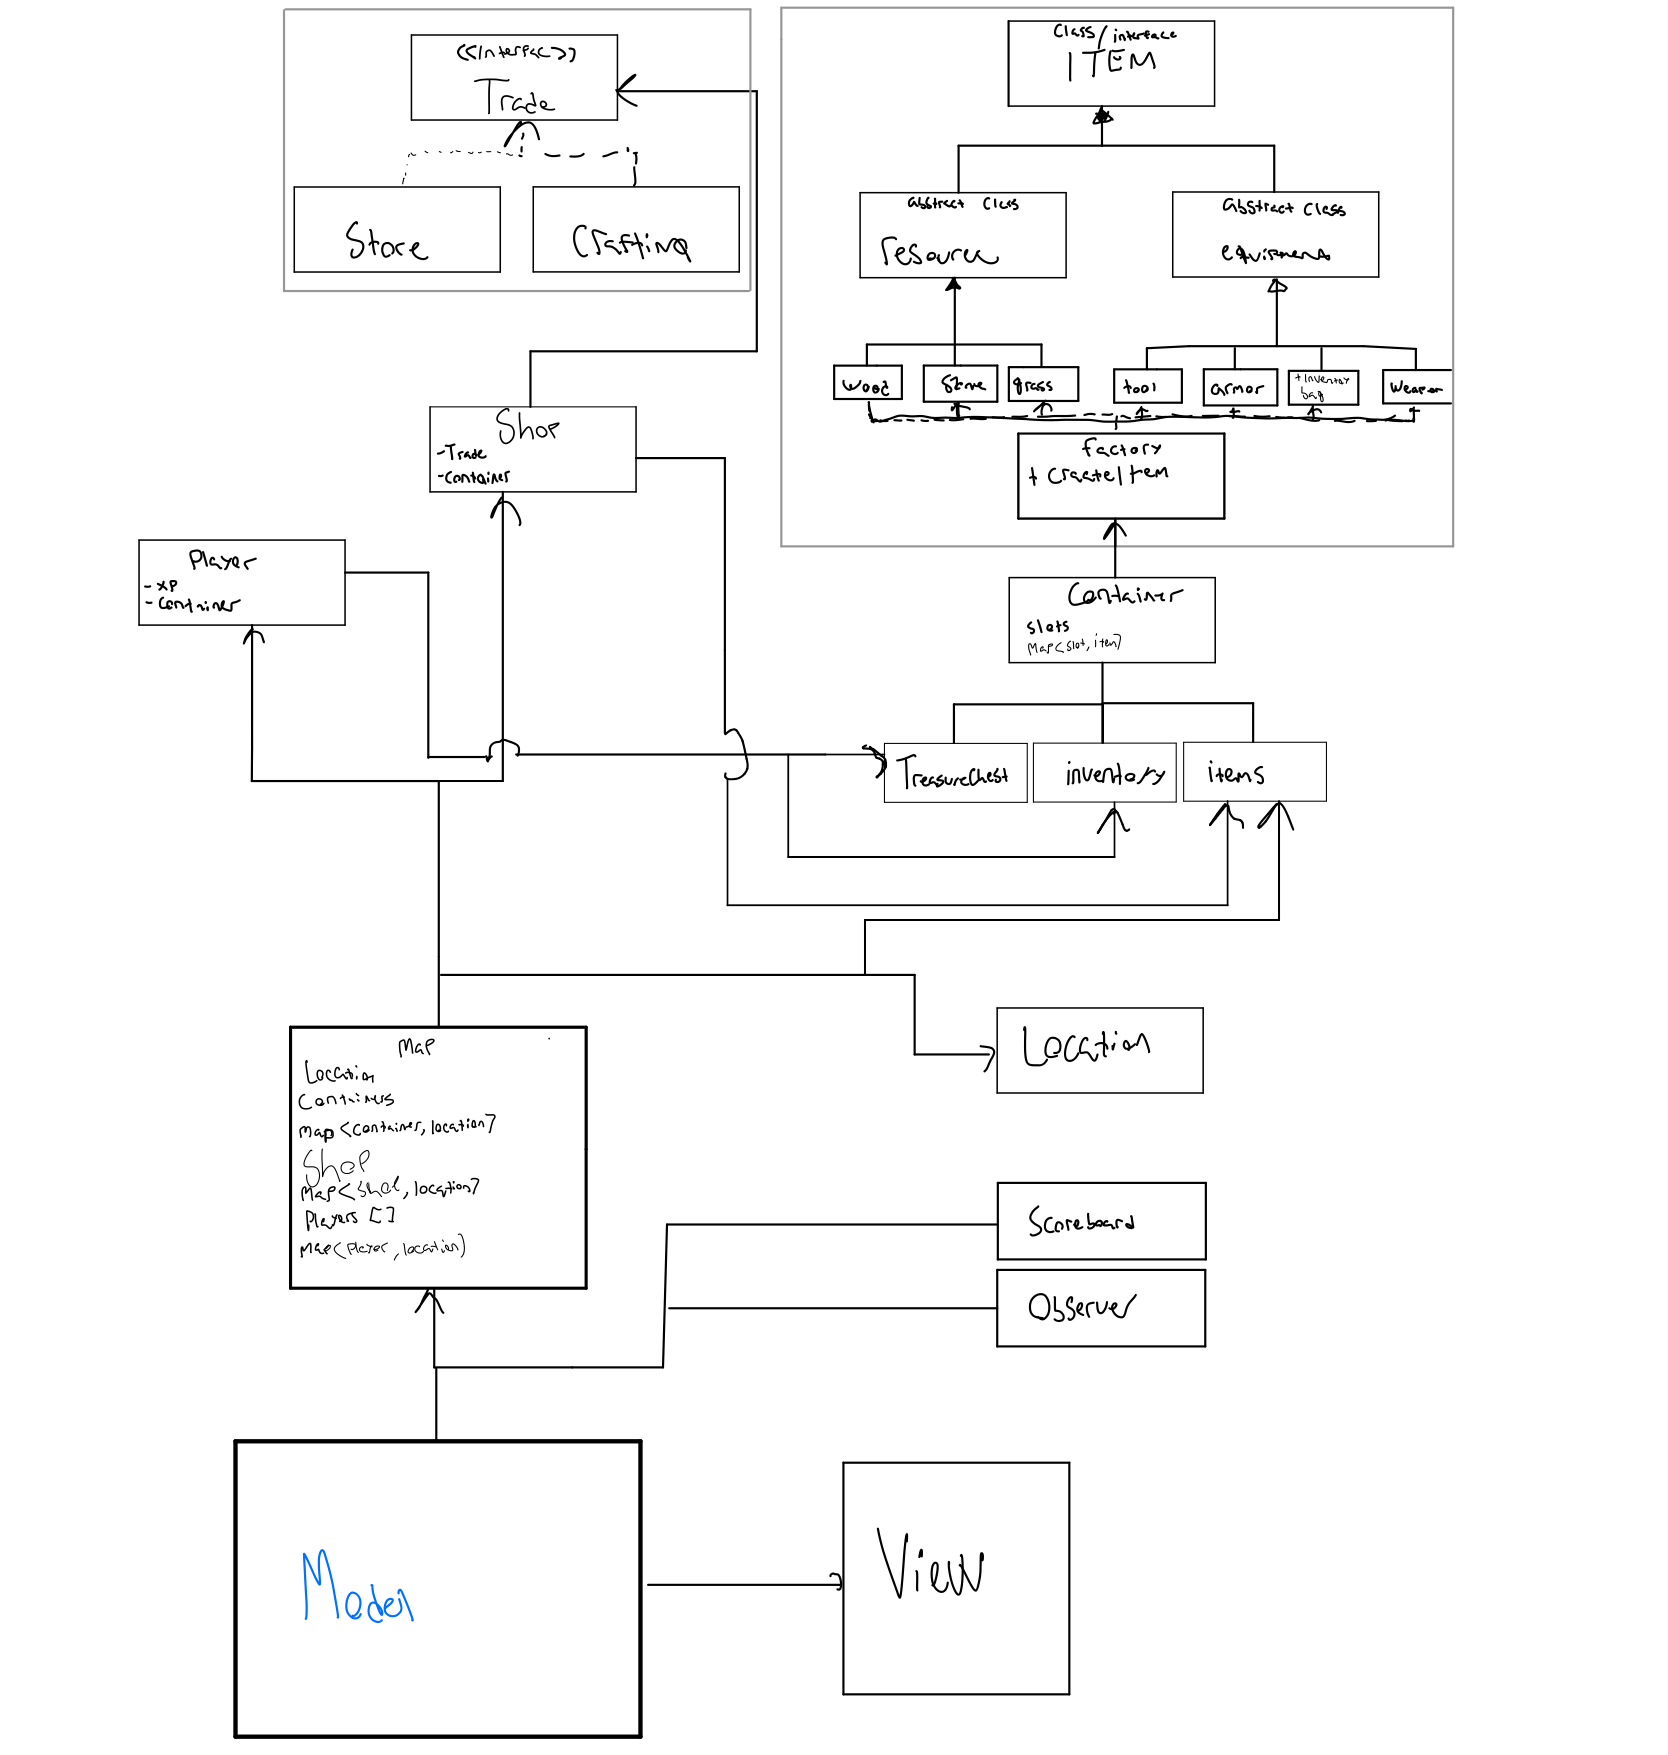 <<Interface>>
Trade
Store
Crafting
Class/interface
ITEM
abstract Class
resource
abstract Class
equipment
wood
Stone
grass
tool
armor
+ Inventory
bag
Weapon
factory
+ CreateItem
Shop
-Trade
-Container
Player
- XP
- Container
Container
slots
Map<slot, item>
TreasureChest
inventory
items
Location
Map
Location
Containers
map <container, location>
Shop
Map<Shop, location>
Players []
Map<Player, location>
Scoreboard
Observer
Model
View